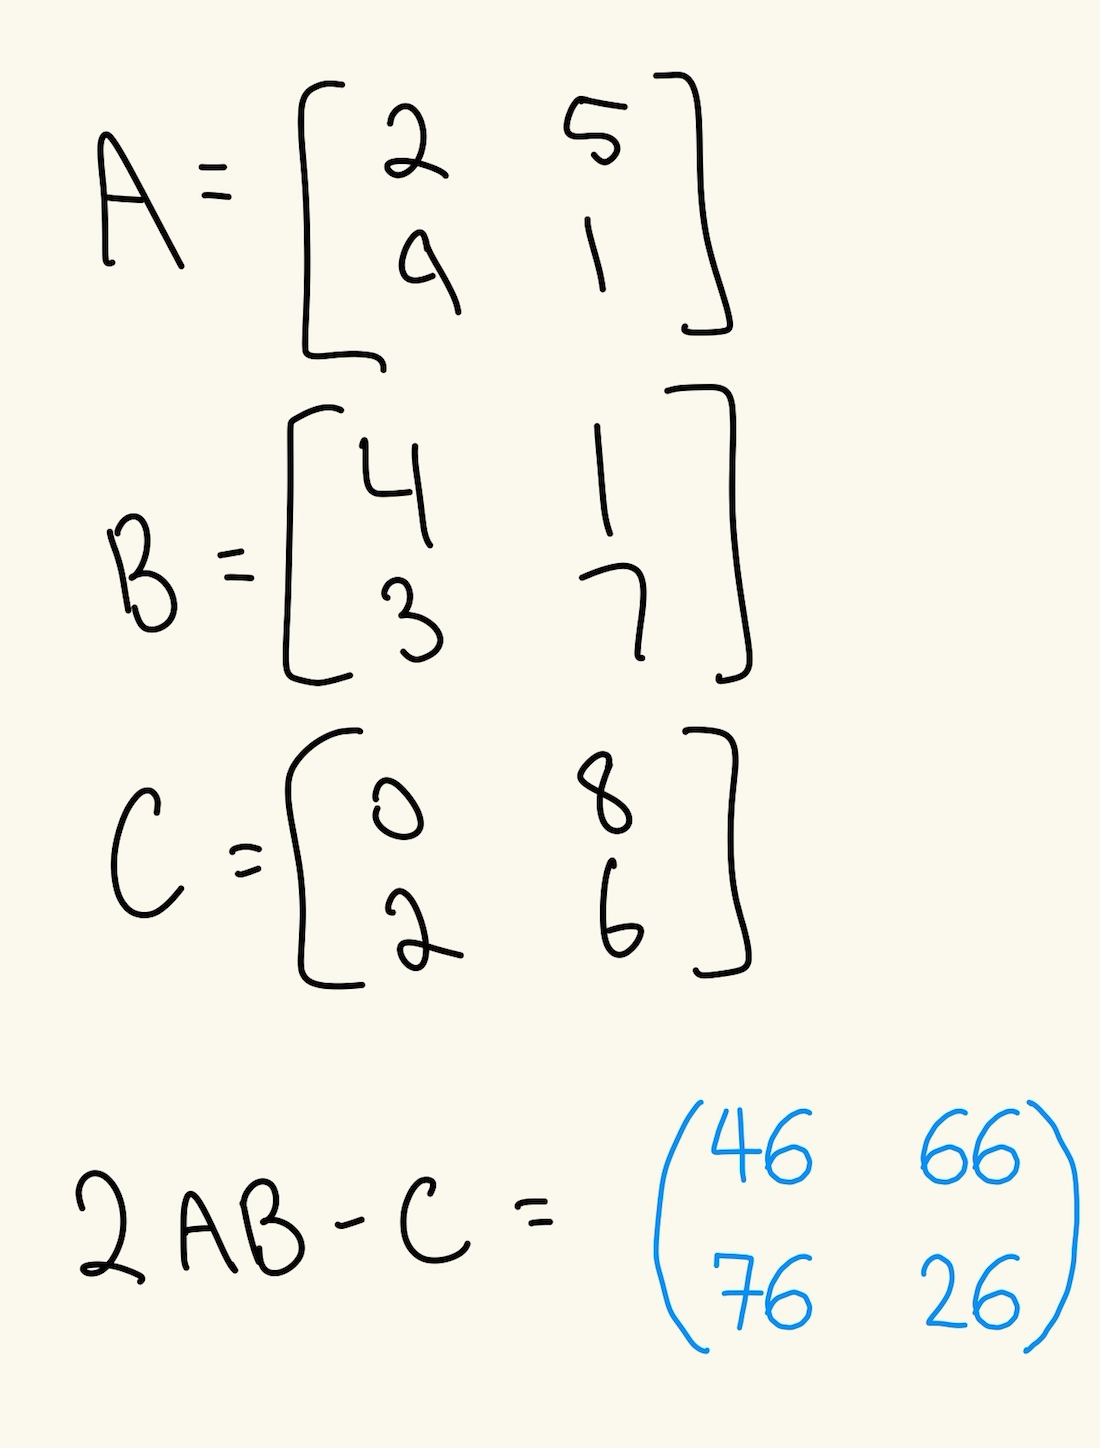 A = [ 2 5
9 1 ]
B = [ 4 1
3 7 ]
C = [ 0 8
2 6 ]
2AB - C = ( 46 66
76 26 )